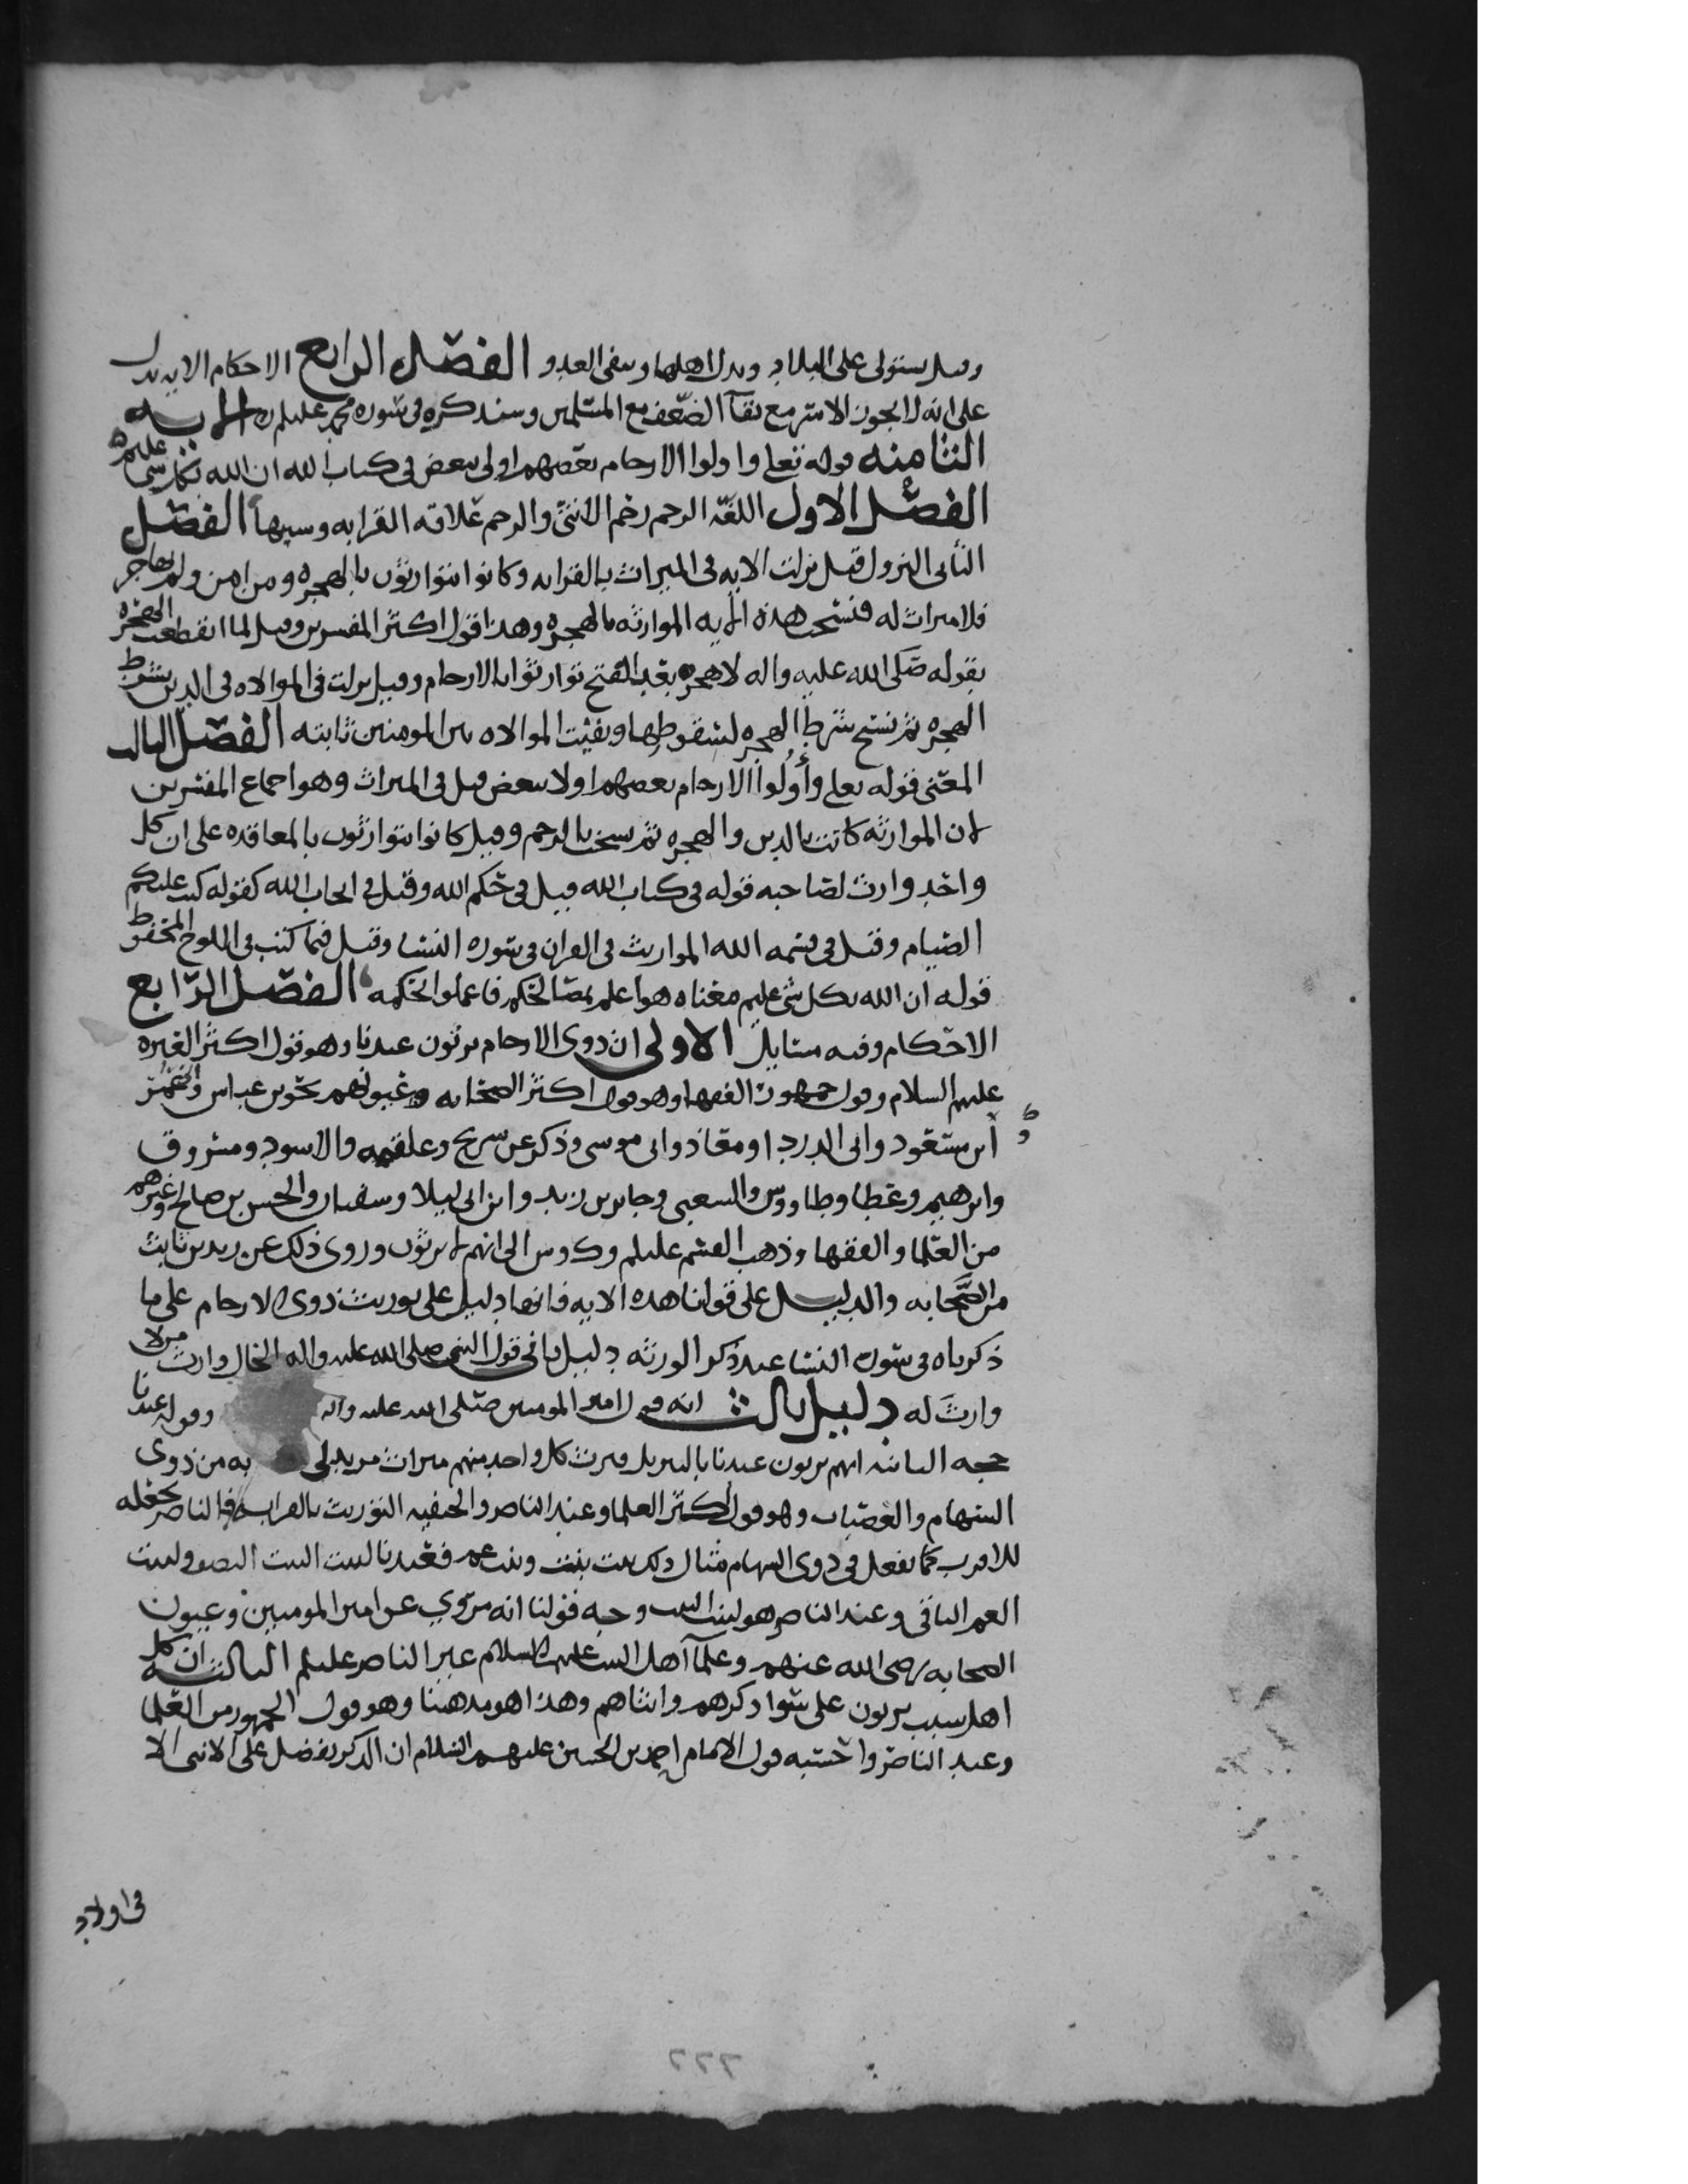 وقيل يستولى على البلاد ويدل اهلها ويبقى العدو الفصل الرابع الاحكام الايه يدل
على انه لا يجوز الاسر مع بقآ الضعف مع المسلمين وسنذكره في سوره محمد عليلم الايه
الثامنه قوله تعلى واولوا الارحام بعضهم اولى ببعض في كتاب الله ان الله بكل شي عليم
الفصل الاول اللغه الرحم رحم الانثى والرحم علاقه القرابه وسببها الفصل
الثاني النزول قيل نزلت الايه في الميراث بالقرابه وكانوا يتوارثون بالهجره ومن امن ولم يهاجر
فلا ميراث له فنسخت هذه الايه الموارثه بالهجره وهذا قول اكثر المفسرين وقيل لما انقطعت الهجره
بقوله صلى الله عليه واله لا هجره بعد الفتح توارثوا بالارحام وقيل نزلت في الموالاه في الدين بشرط
الهجره ثم نسخ شرط الهجره لسقوطها وبقيت الموالاه بين المومنين ثابته الفصل الثالث
المعنى قوله تعلى وأولوا الارحام بعضهم اولا ببعض قيل في الميراث وهو اجماع المفسرين
لان الموارثه كانت بالدين والهجره ثم نسخت بالرحم وقيل كانوا يتوارثون بالمعاقده على ان كل
واحد وارث لصاحبه قوله في كتاب الله قيل في حكم الله وقيل في ايجاب الله كقوله كتب عليكم
الصيام وقيل في قسمه الله المواريث في القران في سوره النسا وقيل فيما كتب في اللوح المحفوظ
قوله ان الله بكل شي عليم معناه هو اعلم بمصالحكم فاعملوا بحكمه الفصل الرابع
الاحكام وفيه مسايل الاولى ان ذوي الارحام يرثون عندنا وهو قول اكثر العتره
عليهم السلام وقول جمهور الفقها وهو قول اكثر الصحابه وعيونهم نحو بن عباس وعمر
و
ابن مسعود وابي الدردا ومعاذ وابي موسى وذكر عن سريح وعلقمه والاسود ومسروق
وابرهيم وعطا وطاووس والشعبي وجابر بن زيد وابن ابي ليلا وسفيان والحسن بن صالح وغيرهم
من العلما والفقها وذهب القسم عليلم و الى انهم لا يرثون وروي ذلك عن زيد بن ثابت
من الصحابه والدليل على قولنا هذه الايه فانها دليل على توريث ذوي الارحام على ما
ذكرناه في سوره النسا عند ذكر الورثه دليل ثاني قول النبي صلى الله عليه واله الخال وارث من لا
وارث له دليل ثالث انه قول امير المومنين صلى الله عليه واله وقوله عندنا
حجه الثانيه انهم يرثون عندنا بالتنزيل فيرث كل واحد منهم ميراث من يدلي به من ذوي
السهام والعصبات وهو قول اكثر العلما وعند الناصر والحنفيه التوريث بالقرابه فالناصر يجعله
للاقرب كما يفعل في ذوي السهام مثال ذلك بنت بنت وبنت عم فعندنا لبنت البنت النصف ولبنت
العم الباقي وعند الناصر هو لبنت البنت وجه قولنا انه مروي عن امير المومنين وعيون
الصحابه رضي الله عنهم وعلمآ اهل البيت عليهم السلام غير الناصر عليلم الثالثه ان كل
اهل سبب يرثون على سوا ذكرهم وانثاهم وهذا هو مذهبنا وهو قول الجمهور من العلما
وعند الناصر واحسبه قول الامام احمد بن الحسين عليهم السلام ان الذكر يفضل على الانثى الا
في اولاد
٢٢٢